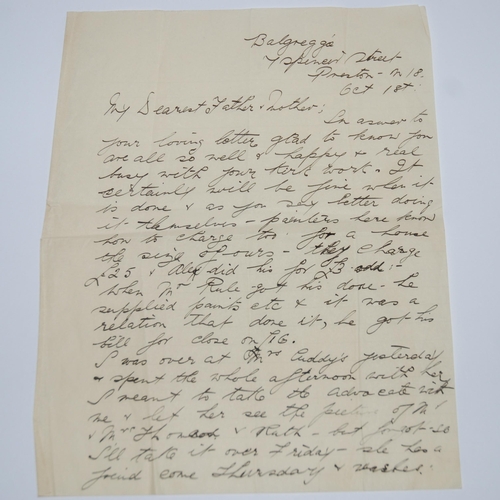 Balgregga
7 Spencer Street
Preston - N 18.
Oct 1st
My Dearest Father & Mother;
In answer to
your loving letter glad to know you
are all so well & happy & real
busy with your work. It
certainly will be fine when it
is done & as you say better doing
it themselves - painters here know
how to charge too. for a house
the size of ours - they charge
£25 & Alex did his for £3 odd.
When Mr Rule got his done - he
supplied paints etc & it was a
relation that done it, he got his
bill for close on £16.
I was over at Mrs Cuddy's yesterday
& spent the whole afternoon with her
I meant to take the Advocate with
me & let her see the of Mr
& Mrs Thomson & Ruth - but forgot - so
I'll take it over Friday - she has a
friend come Thursday &